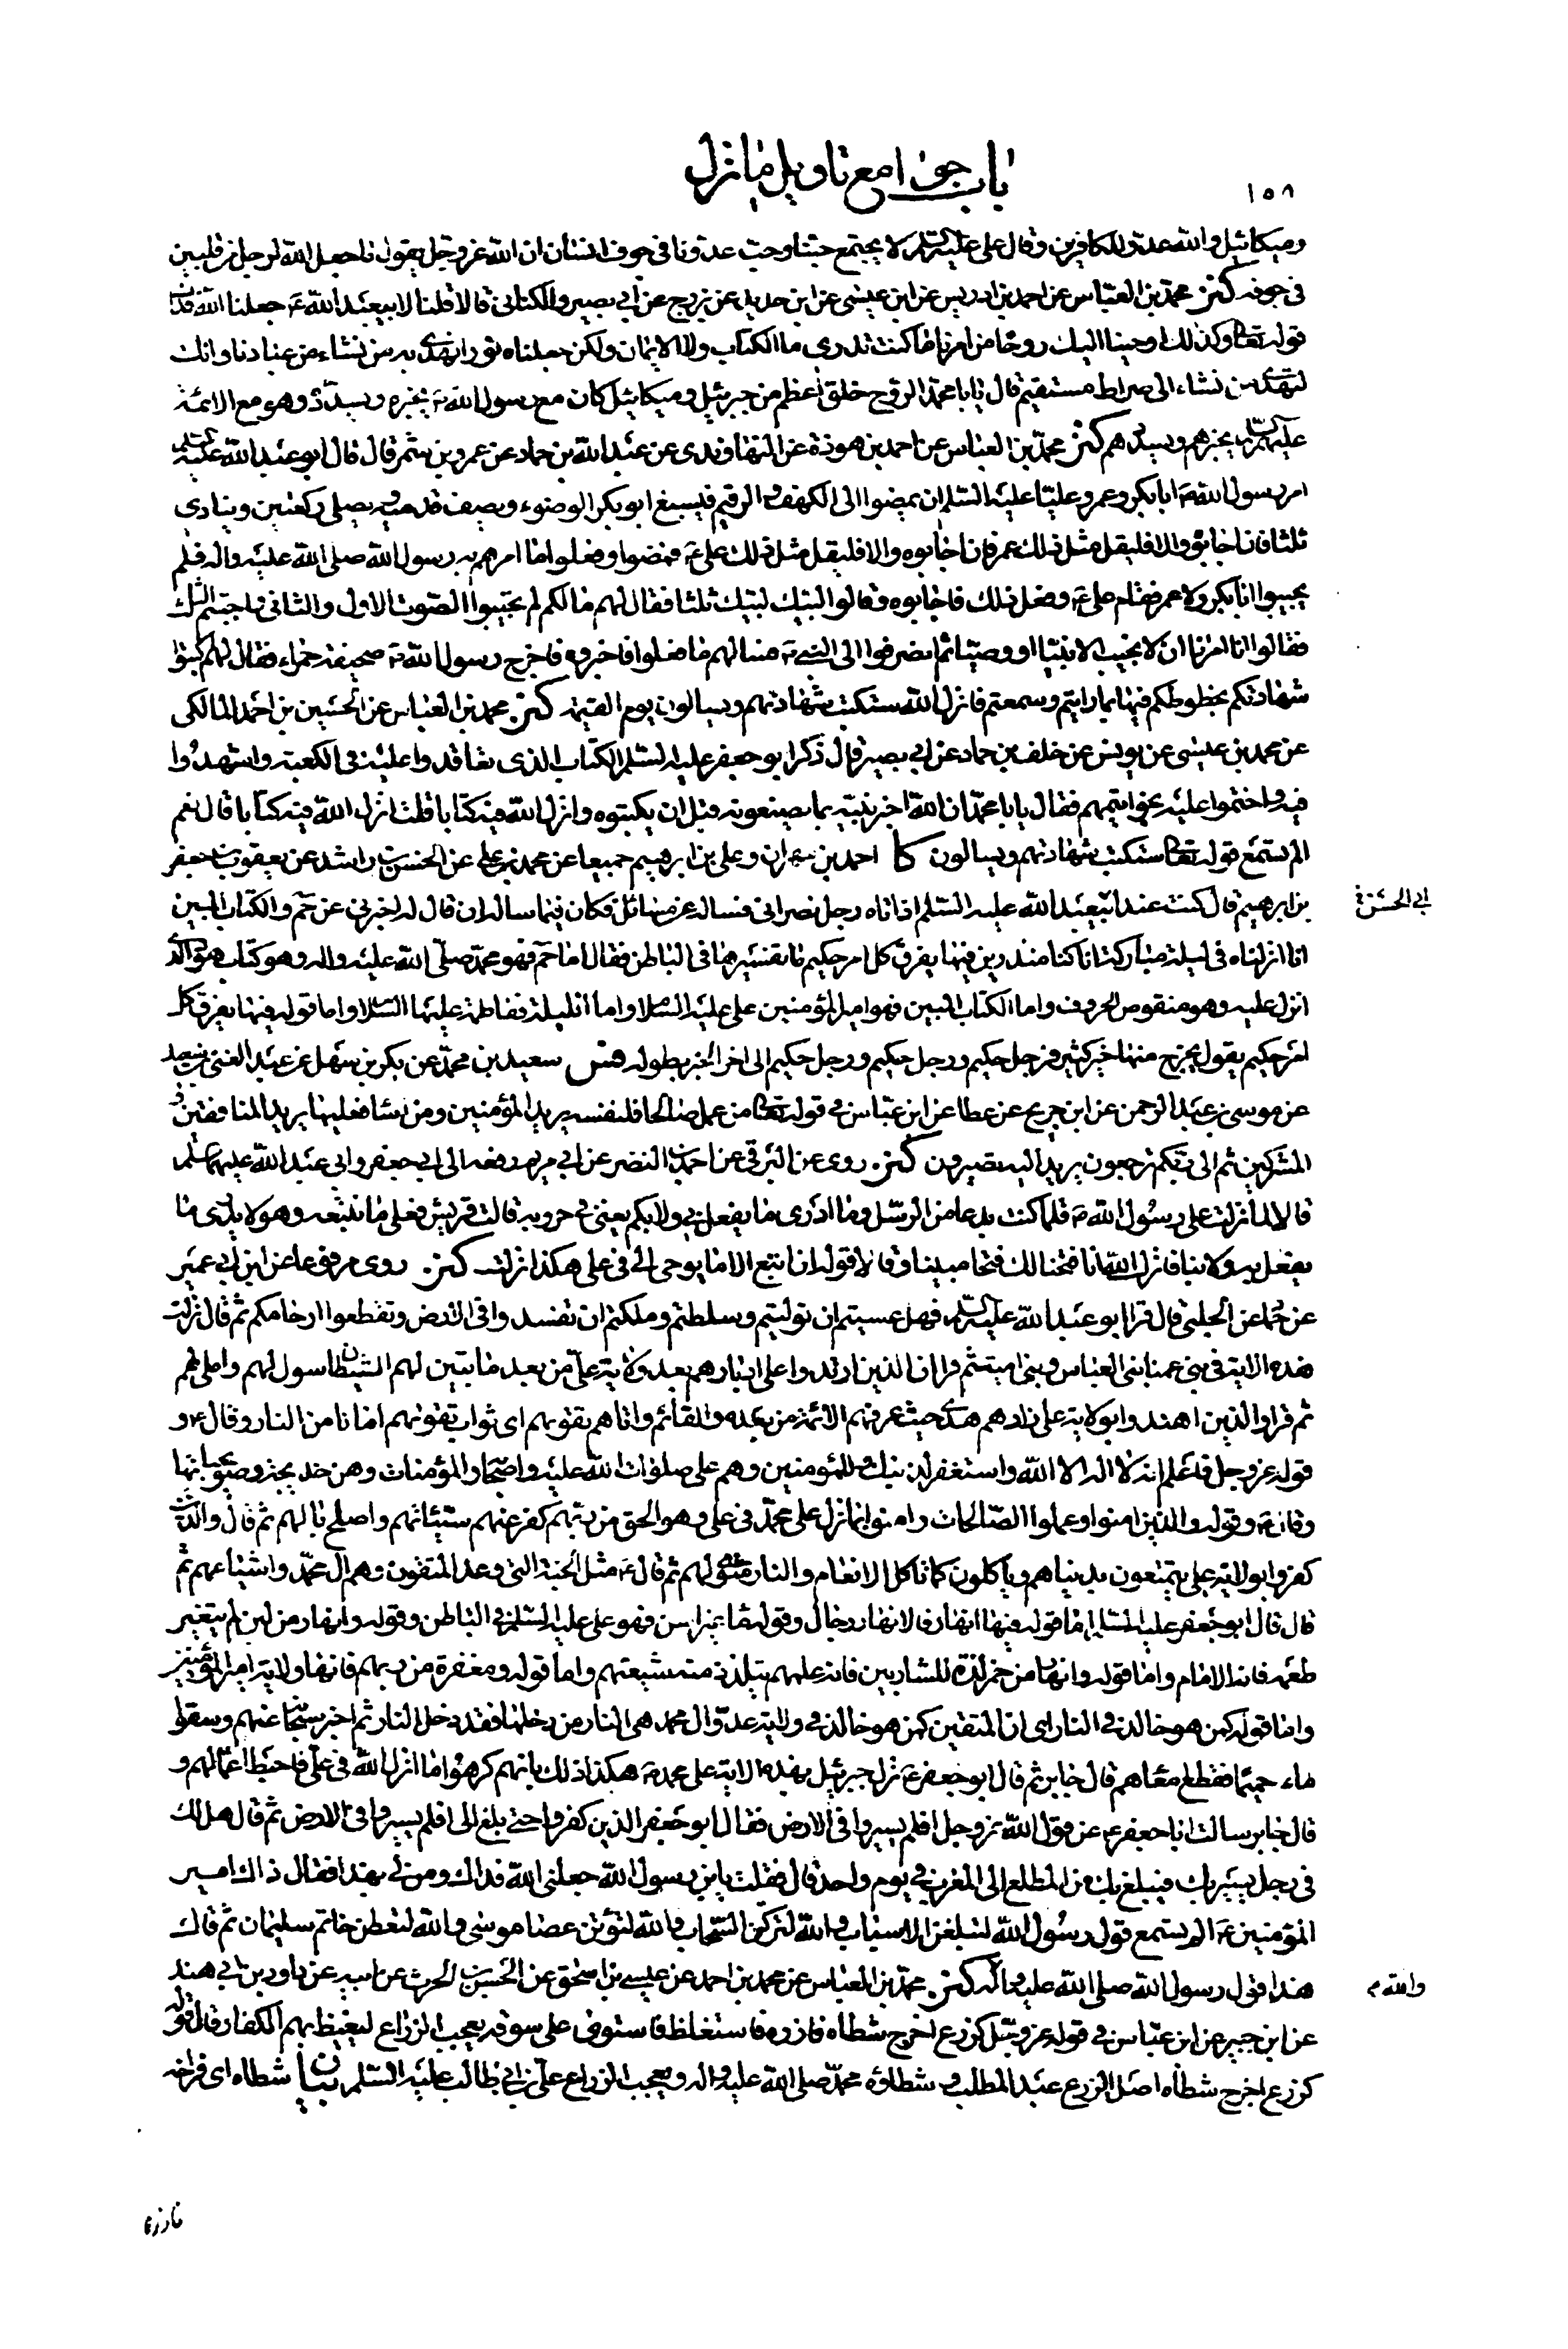 ١٥٨
باب جوامع تاويل ما نزل
وميكائيل فان الله عدو للكافرين وقال علي عليه السلم لا يجتمع حبنا وحب عدونا في جوف انسان ان الله عز وجل يقول ما جعل الله لرجل من قلبين
في جوفه كنز محمد بن العباس عن احمد بن ادريس عن ابن عيسى عن ابن حديد عن بزرج عن ابي بصير والكناني قالا قلنا لابيعبد الله ع جعلنا الله فداك
قوله تعالى وكذلك اوحينا اليك روحا من امرنا ما كنت تدري ما الكتاب ولا الايمان ولكن جعلناه نورا نهدي به من نشاء من عبادنا وانك
لتهدي من نشاء الى صراط مستقيم قال يا با محمد الروح خلق اعظم من جبرئيل وميكائيل كان مع رسول الله ص يخبره ويسدده وهو مع الائمة
عليهم السلم يخبرهم ويسددهم كنز محمد بن العباس عن احمد بن هوذة عن النهاوندي عن عبد الله بن حماد عن عمرو بن شمر قال قال ابو عبد الله عليه السلم
امر رسول الله ص ابا بكر وعمر وعليا عليه السلم ان يمضوا الى الكهف والرقيم فيسبغ ابو بكر الوضوء ويصف قدميه ويصلي ركعتين وينادي
ثلثا فان اجابوه والا فليقل مثل ذلك عمر فان اجابوه والا فليقل مثل ذلك علي ع فمضوا وفعلوا ما امرهم به رسول الله صلى الله عليه واله فلم
يجيبوا ابا بكر ولا عمر فقام علي ع وفعل ذلك فاجابوه وقالوا لبيك لبيك ثلثا فقال لهم ما لكم لم تجيبوا الصوت الاول والثاني واجبتم الثالث
فقالوا انا امرنا ان لا نجيب الا نبيا او وصيا ثم انصرفوا الى النبي ص فسالهم ما فعلوا فاخبروه فاخرج رسول الله ص صحيفة حمراء فقال لهم اكتبوا
شهادتكم بخطوطكم فيها بما رايتم وسمعتم فانزل الله ستكتب شهادتهم ويسالون يوم القيمة كنز محمد بن العباس عن الحسين بن احمد المالكي
عن محمد بن عيسى عن يونس عن خلف بن حماد عن ابي بصير قال ذكر ابو جعفر عليه السلم الكتاب الذي تعاقدوا عليه في الكعبة واشهدوا
فيه واختموا عليه بخواتيمهم فقال يا با محمد ان الله اخبر نبيه بما يصنعونه قبل ان يكتبوه وانزل الله فيه كتابا قلت انزل الله فيه كتابا قال نعم
الم تسمع قوله تعالى ستكتب شهادتهم ويسالون كا احمد بن مهران وعلي بن ابرهيم جميعا عن محمد بن علي عن الحسن بن راشد عن يعقوب بن جعفر
بن ابرهيم قال كنت عند ابيعبد الله عليه السلم اذ اتاه رجل نصراني فساله عن مسائل فكان فيما ساله ان قال له اخبرني عن حم والكتاب المبين
ابي الحسن خ
انا انزلناه في ليلة مباركة انا كنا منذرين فيها يفرق كل امر حكيم ما تفسيرها في الباطن فقال اما حم فهو محمد صلى الله عليه واله وهو كتاب هود الذي
انزل عليه وهو منقوص الحروف واما الكتاب المبين فهو امير المؤمنين علي عليه السلام واما الليلة ففاطمة عليها السلام واما قوله فيها يفرق كل
امر حكيم يقول يخرج منها خير كثير فرجل حكيم ورجل حكيم ورجل حكيم الى اخر الخبر بطوله فس سعيد بن محمد عن بكر بن سهل عن عبد الغني بن سعيد
عن موسى بن عبد الرحمن عن ابن جريج عن عطا عن ابن عباس في قوله تعالى من عمل صالحا فلنفسه يريد المؤمنين ومن اساء فعليها يريد المنافقين و
المشركين ثم الى ربكم ترجعون يريد اليه تصيرون كنز روي عن البرقي عن احمد بن النضر عن ابي مريم رفعه الى ابي جعفر وابي عبد الله عليهما السلم
قالا لما نزلت على رسول الله ص قل ما كنت بدعا من الرسل وما ادري ما يفعل بي ولا بكم يعني في حروبه قالت قريش فعلى ما نتبعه وهو لا يدري ما
يفعل به ولا بنا فانزل الله انا فتحنا لك فتحا مبينا وقالا قوله ان اتبع الا ما يوحى الي في علي هكذا نزلت كنز روي مرفوعا عن ابن ابي عمير
عن حماد عن الحلبي قال قرا ابو عبد الله عليه السلم فهل عسيتم ان توليتم وسلطتم وملكتم ان تفسدوا في الارض وتقطعوا ارحامكم ثم قال نزلت
هذه الاية في بني عمنا بني العباس وبني امية ثم قرا ان الذين ارتدوا على ادبارهم بعد ولاية علي من بعد ما تبين لهم الشيطان سول لهم واملى لهم
ثم قرا والذين اهتدوا بولاية علي زادهم هدى حيث عرفهم الائمة من بعده والقائم واتاهم تقويهم اي ثواب تقويهم امانا من النار وقال ع و
قوله عز وجل فاعلم انه لا اله الا الله واستغفر لذنبك وللمؤمنين وهم علي صلوات الله عليه واصحابه والمؤمنات وهن خديجة وصويحباتها
وقال ع وقوله والذين امنوا وعملوا الصالحات وامنوا بما نزل على محمد في علي وهو الحق من ربهم كفر عنهم سيئاتهم واصلح بالهم ثم قال والذين
كفروا بولاية علي يتمتعون بدنياهم وياكلون كما تاكل الانعام والنار مثوى لهم ثم قال ع مثل الجنة التي وعد المتقون وهم ال محمد واشياعهم ثم
قال قال ابو جعفر عليه السلم اما قوله فيها انهار فالانهار رجال وقوله ماء غير اسن فهو علي عليه السلم في الباطن وقوله وانهار من لبن لم يتغير
طعمه فانه الامام واما قوله وانهار من خمر لذة للشاربين فانه علمهم يتلذذ منه شيعتهم واما قوله ومغفرة من ربهم فانها ولاية امير المؤمنين
واما قوله كمن هو خالد في النار اي ان المتقين كمن هو خالد في ولاية عدو ال محمد هي النار من دخلها فقد دخل النار ثم اخبر سبحانه عنهم وسقوا
ماء حميما فقطع امعاءهم قال جابر ثم قال ابو جعفر ع نزل جبرئيل بهذه الاية على محمد ص هكذا ذلك بانهم كرهوا ما انزل الله في علي فاحبط اعمالهم و
قال جابر سالت ابا جعفر ع عن قول الله عز وجل افلم يسيروا في الارض فقال ابو جعفر الذين كفروا حتى بلغ الى افلم يسيروا في الارض ثم قال هل لك
في رجل يسير بك فيبلغ بك من المطلع الى المغرب في يوم واحد قال فقلت يا بن رسول الله جعلني الله فداك ومن لي بهذا فقال ذاك امير
المؤمنين ع الم تسمع قول رسول الله لتبلغن الاسباب والله لتركبن السحاب والله لتؤتن عصا موسى والله لتعطن خاتم سليمان ثم قال
هذا قول رسول الله صلى الله عليه واله كنز محمد بن العباس عن محمد بن احمد عن عيسى بن اسحق عن الحسن بن الحرث عن ابيه عن داود بن ابي هند
والله م
عن ابن جبير عن ابن عباس في قوله عز وجل كزرع اخرج شطاه فازره فاستغلظ فاستوى على سوقه يعجب الزراع ليغيظ بهم الكفار قال قوله
كزرع اخرج شطاه اصل الزرع عبد المطلب وشطاؤه محمد صلى الله عليه واله ويعجب الزراع علي بن ابي طالب عليه السلم بيان شطاه اي فراخه
فازره